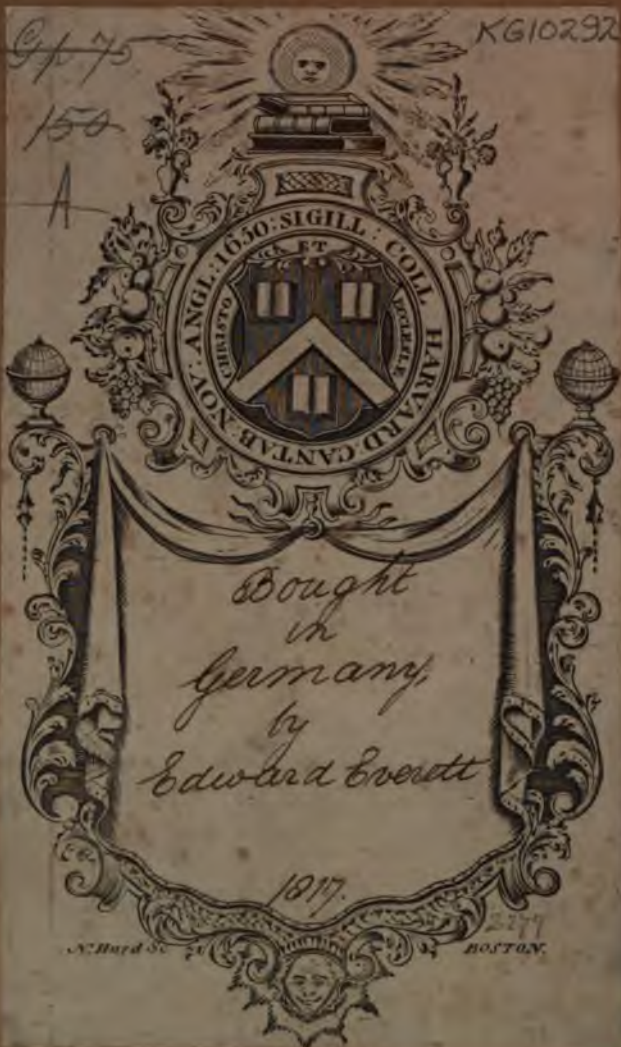 Gp 75
KG10292
150
A
SIGILL : COLL HARVARD : CANTAB : NOV : ANGL : 1650 :
CHRISTO ET ECCLESIÆ
Bought
in
Germany,
by
Edward Everett
1817.
2277
N. Hurd Sc
BOSTON.